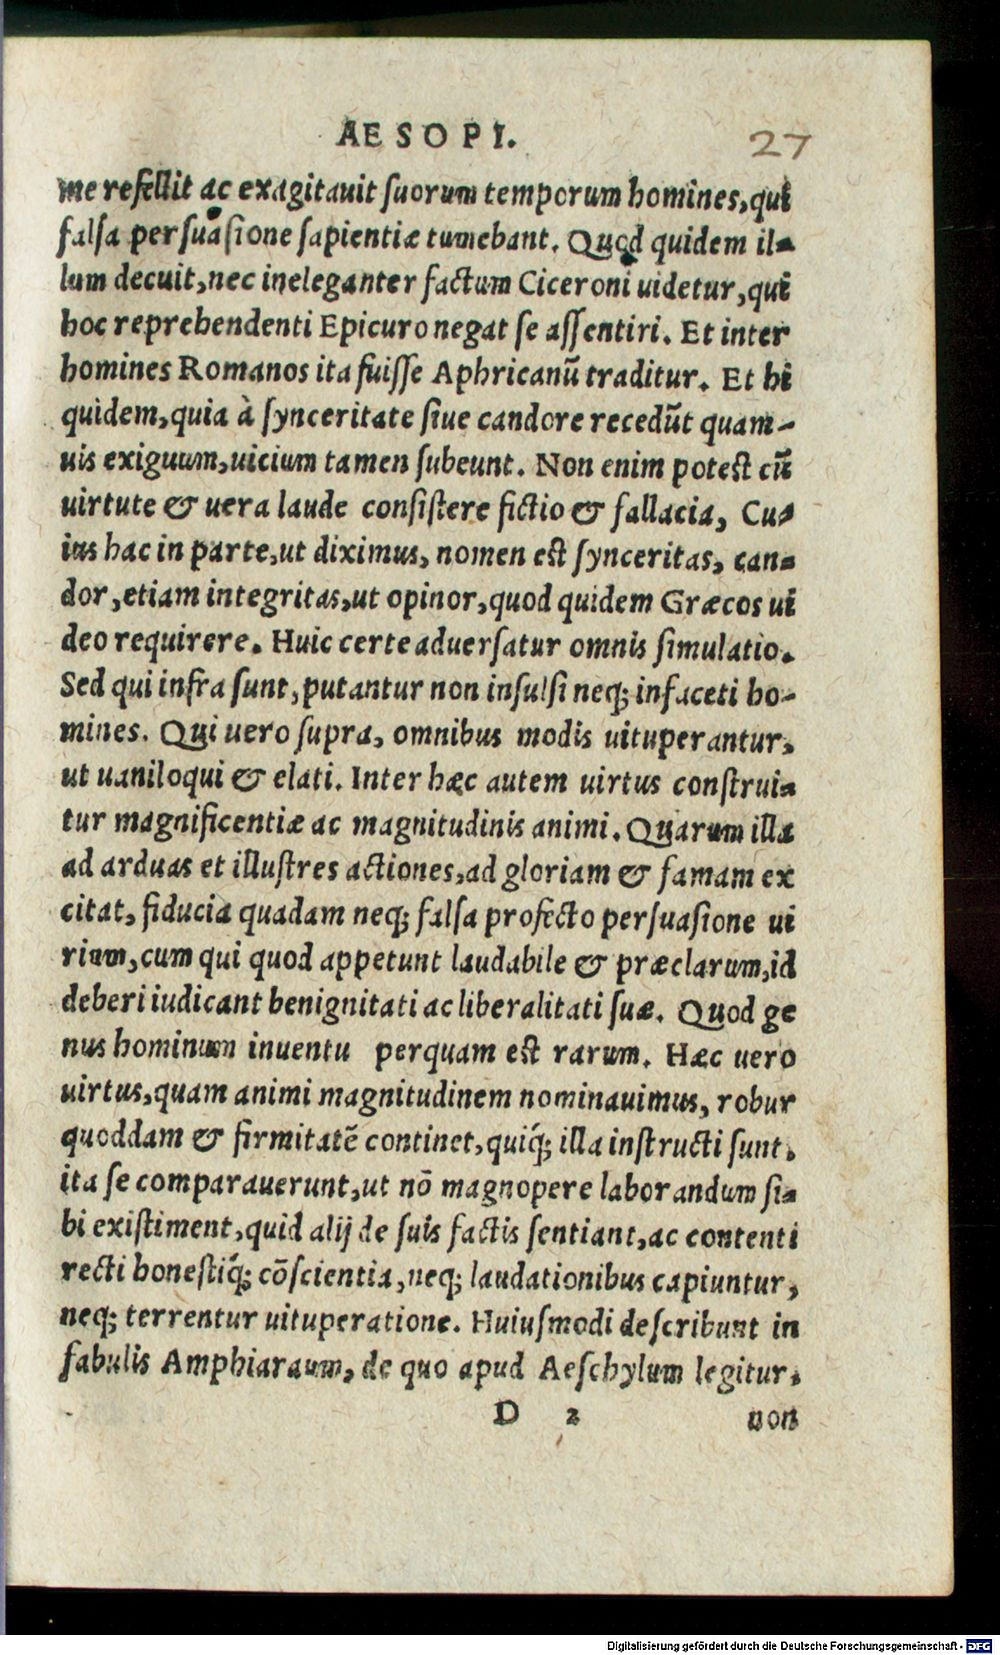 AESOPI.
27
me refellit ac exagitauit suorum temporum homines, qui
falsa persuasione sapientiæ tumebant. Quod quidem il-
lum decuit, nec ineleganter factum Ciceroni uidetur, qui
hoc reprehendenti Epicuro negat se assentiri. Et inter
homines Romanos ita fuisse Aphricanũ traditur. Et hi
quidem, quia à synceritate siue candore recedũt quam-
uis exiguum, uicium tamen subeunt. Non enim potest cũ
uirtute & uera laude consistere fictio & fallacia, Cu-
ius hac in parte, ut diximus, nomen est synceritas, can-
dor, etiam integritas, ut opinor, quod quidem Græcos ui
deo requirere. Huic certe aduersatur omnis simulatio.
Sed qui infra sunt, putantur non insulsi neq; infaceti ho-
mines. Qui uero supra, omnibus modis uituperantur,
ut uaniloqui & elati. Inter hæc autem uirtus construi-
tur magnificentiæ ac magnitudinis animi. Quarum illa
ad arduas et illustres actiones, ad gloriam & famam ex
citat, fiducia quadam neq; falsa profecto persuasione ui
rium, cum qui quod appetunt laudabile & præclarum, id
deberi iudicant benignitati ac liberalitati suæ. Quod ge
nus hominum inuentu perquam est rarum. Hæc uero
uirtus, quam animi magnitudinem nominauimus, robur
quoddam & firmitatẽ continet, quiq́; illa instructi sunt,
ita se comparauerunt, ut nõ magnopere laborandum si-
bi existiment, quid alij de suis factis sentiant, ac contenti
recti honestiq́; cõscientia, neq; laudationibus capiuntur,
neq; terrentur uituperatione. Huiusmodi describunt in
fabulis Amphiaraum, de quo apud Aeschylum legitur,
D 2 non
Digitalisierung gefördert durch die Deutsche Forschungsgemeinschaft - DFG